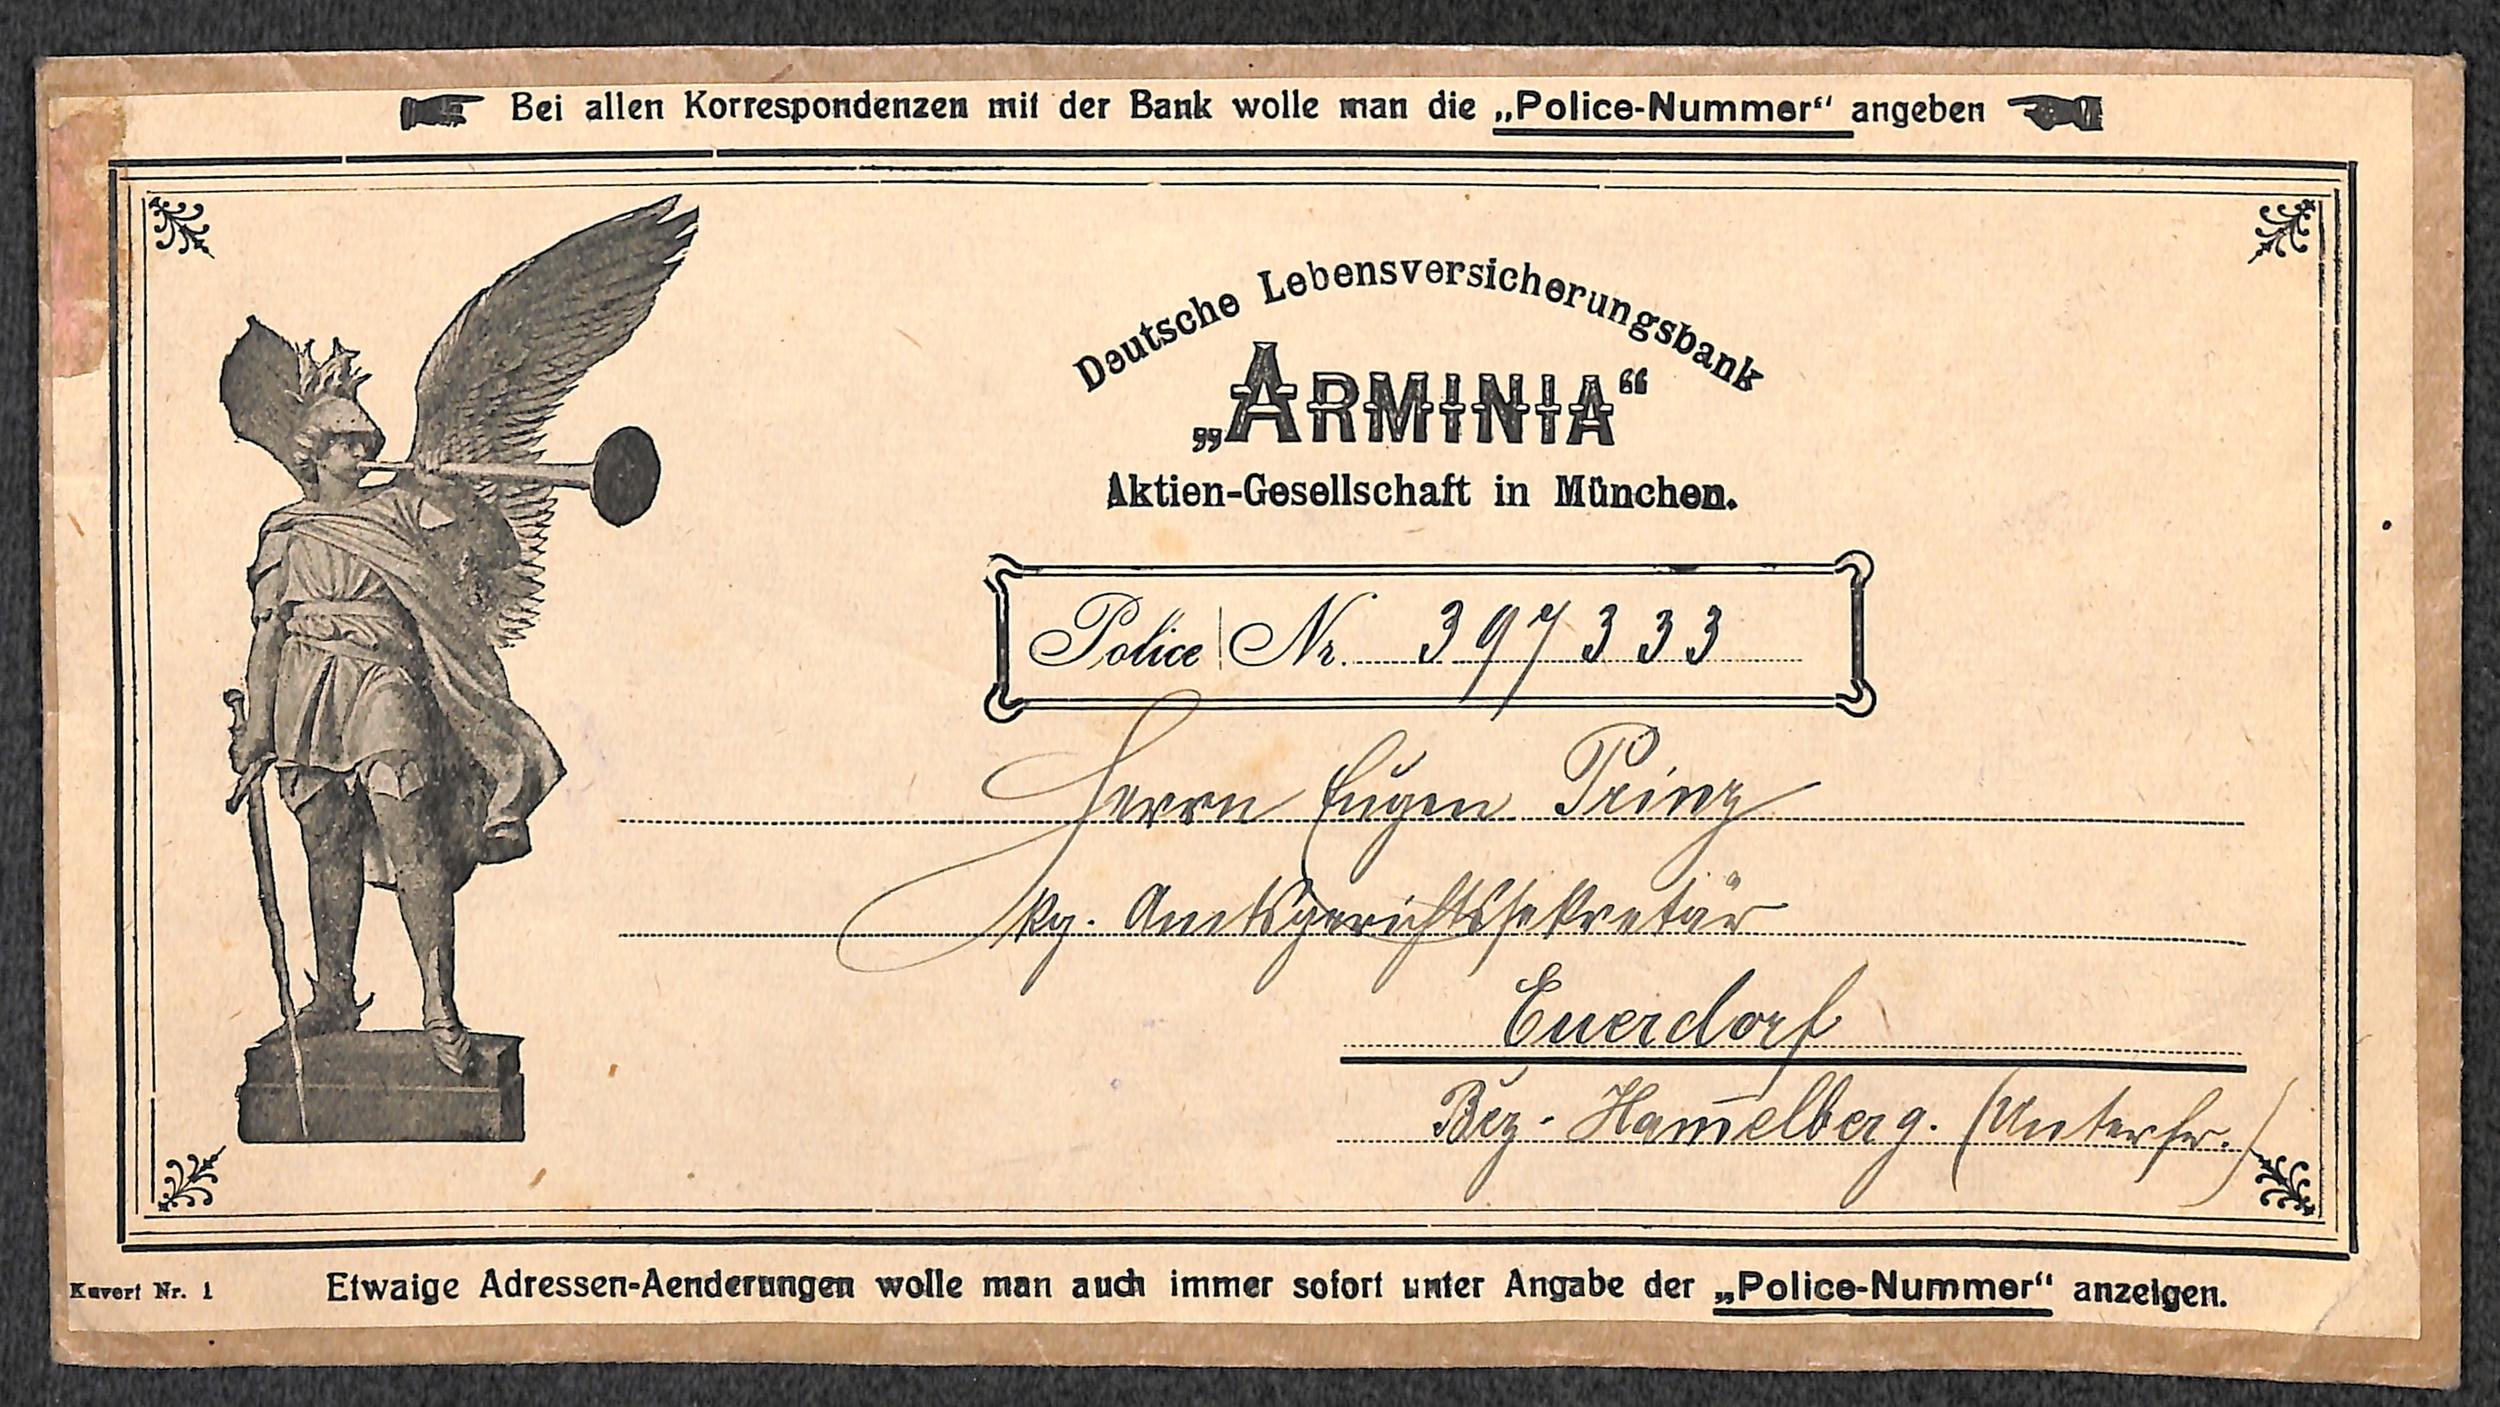 Bei allen Korrespondenzen mit der Bank wolle man die „Police-Nummer“ angeben
Deutsche Lebensversicherungsbank
„ARMINIA“
Aktien-Gesellschaft in München.
Police Nr. 397333
Herrn Eugen Prinz
kg. Amtsgerichtssekretär
Euerdorf
Bez. Ham̅elberg. (Unterfr.)
Kuvert Nr. 1
Etwaige Adressen-Aenderungen wolle man auch immer sofort unter Angabe der „Police-Nummer“ anzeigen.